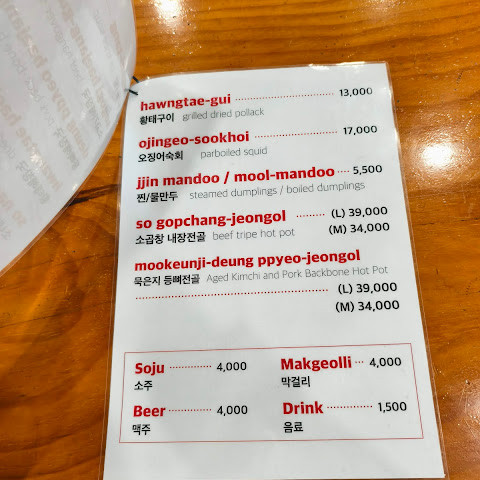 hawngtae-gui ........ 13,000
황태구이 grilled dried pollack
ojingeo-sookhoi ........ 17,000
오징어숙회 parboiled squid
jjin mandoo / mool-mandoo .... 5,500
찐/물만두 steamed dumplings / boiled dumplings
so gopchang-jeongol ........ (L) 39,000
소곱창 내장전골 beef tripe hot pot (M) 34,000
mookeunji-deung ppyeo-jeongol
묵은지 등뼈전골 Aged Kimchi and Pork Backbone Hot Pot
........ (L) 39,000
(M) 34,000
Soju ........ 4,000 Makgeolli ... 4,000
소주 막걸리
Beer ........ 4,000 Drink ........ 1,500
맥주 음료